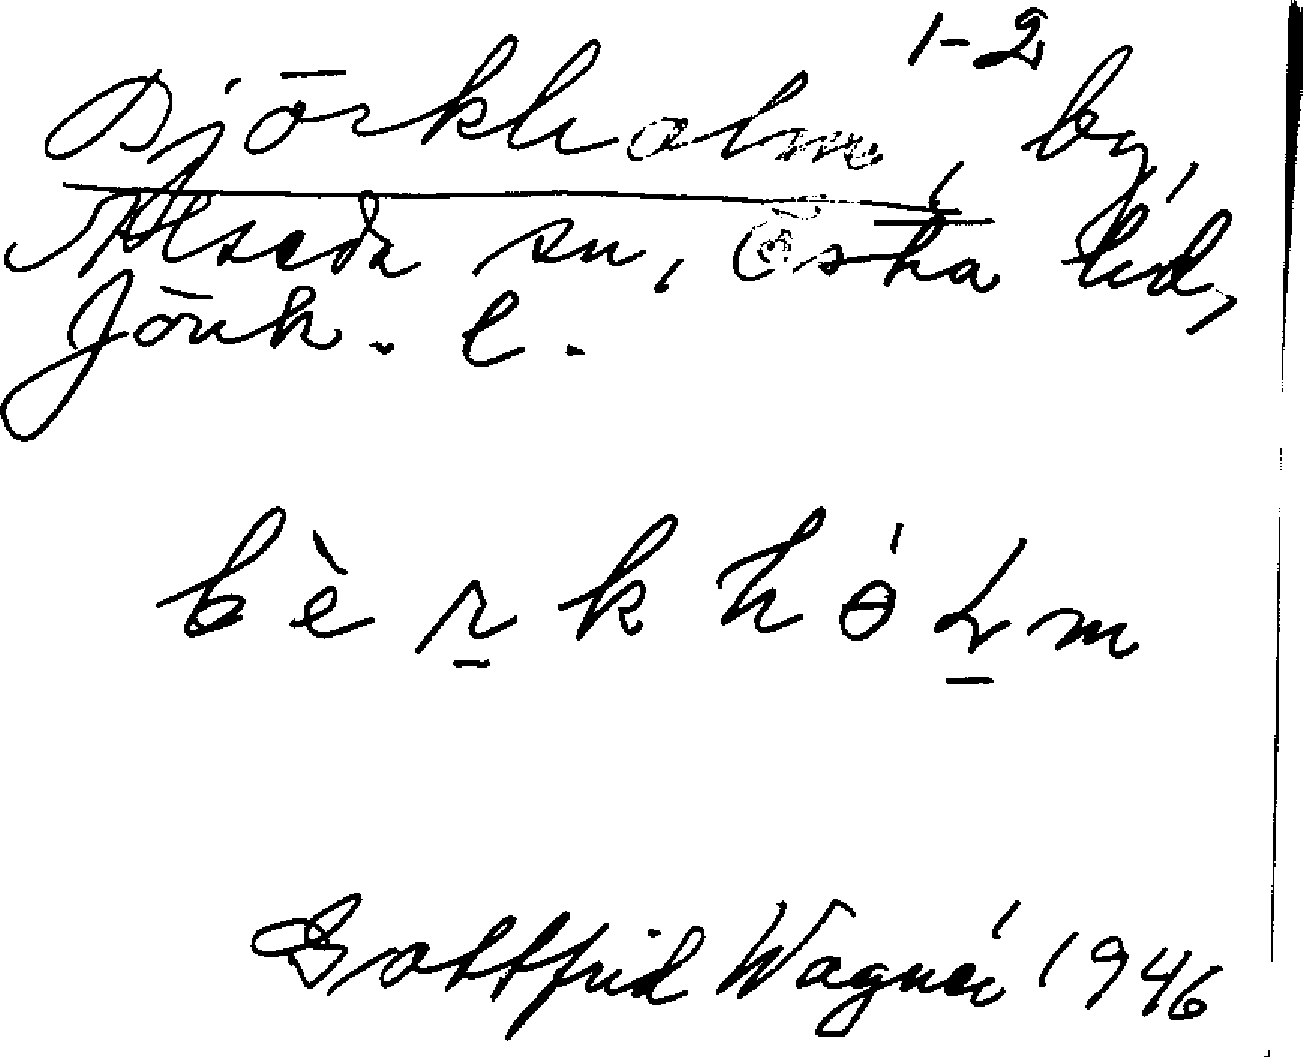 Björkholm 1-2, by,
Alseda sn, Östra hd,
Jönk. l.
bèrkhólm
Gottfrid Wagnér 1946